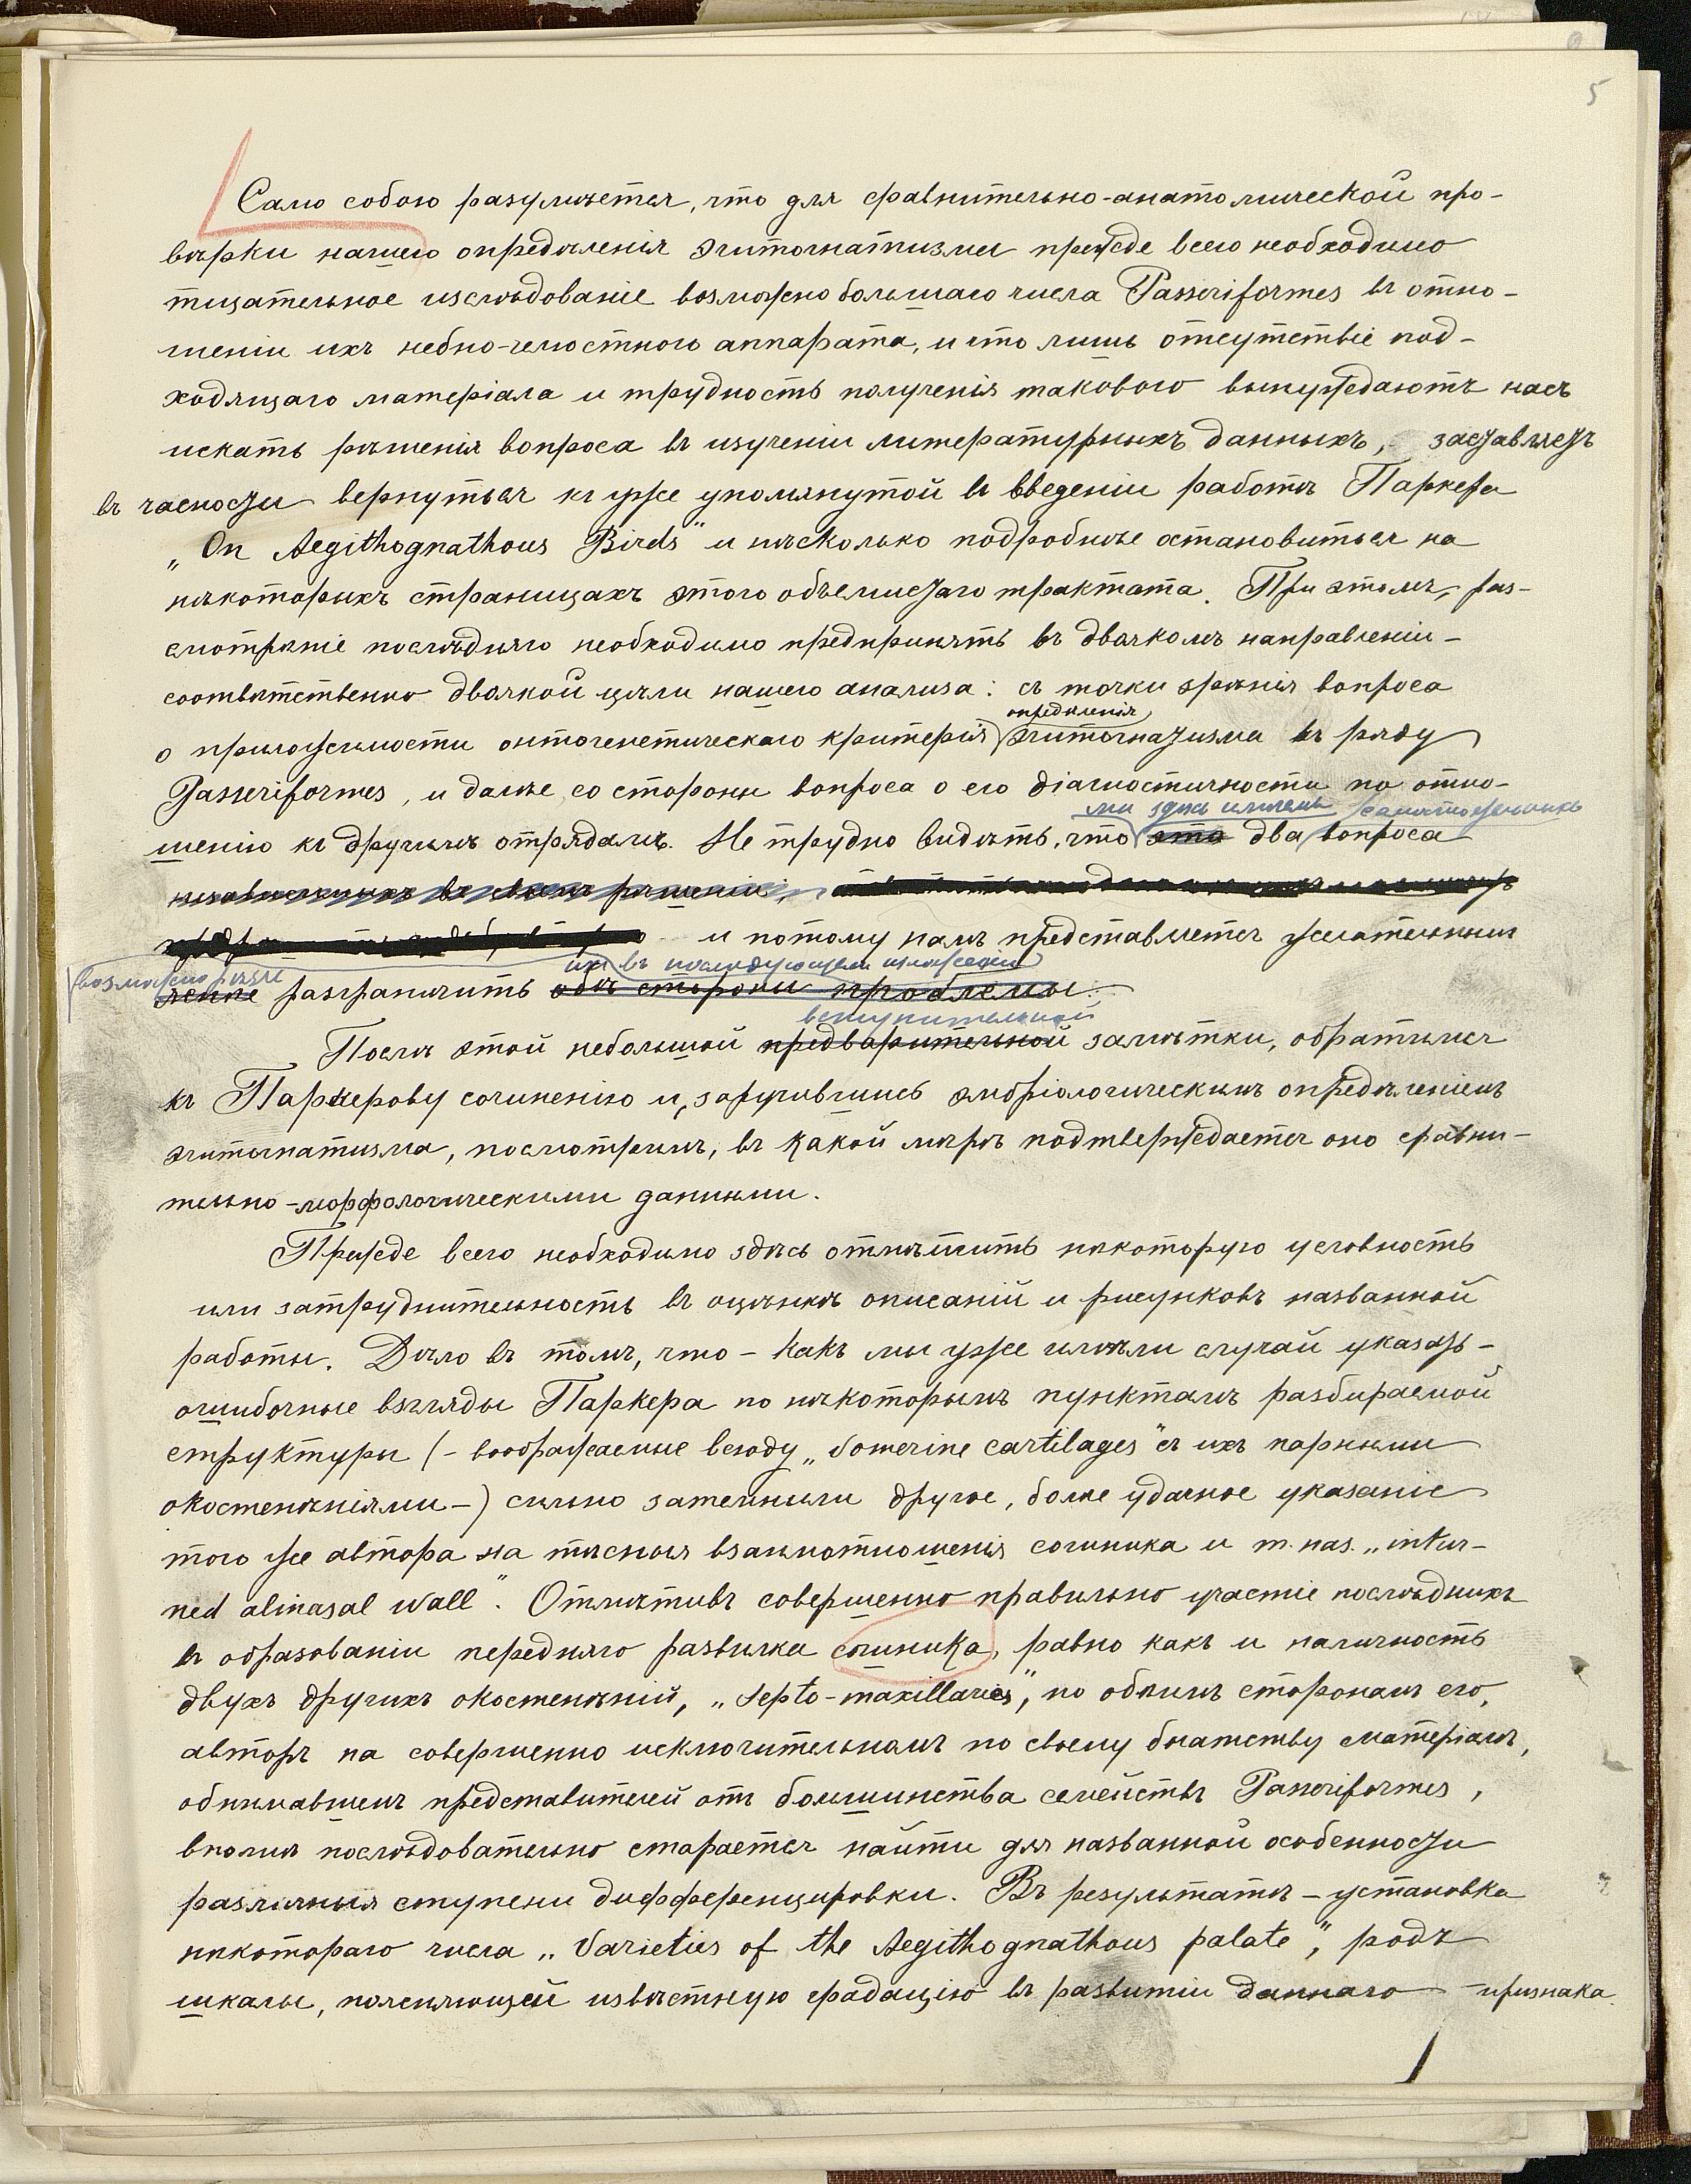 5
Само собою разумѣется, что для сравнительно-анатомической про-
вѣрки нашего опредѣленія эгитогнатизма прежде всего необходимо
тщательное изслѣдованіе возможно большаго числа Passeriformes въ отно-
шеніи ихъ небно-челюстного аппарата, и что лишь отсутствіе под-
ходящаго матеріала и трудность полученія такового вынуждаютъ насъ
искать рѣшенія вопроса въ изученіи литературныхъ данныхъ, заставляетъ
въ часности вернуться къ уже упомянутой въ введеніи работѣ Паркера
„On Aegithognathous Birds" и нѣсколько подробнѣе остановиться на
нѣкоторыхъ страницахъ этого объемистаго трактата. При этомъ, раз-
смотрѣніе послѣдняго необходимо предпринять въ двоякомъ направленіи -
соотвѣтственно двоякой цѣли нашего анализа: съ точки зрѣнія вопроса
опредѣленія
о приложимости онтогенетическаго критерія эгитогнатизма въ ряду
Passeriformes, и далѣе, со стороны вопроса о его діагностичности по отно-
мы здѣсь имѣемъ самостоятельныхъ
шенію къ другимъ отрядамъ. Не трудно видѣть, что это два вопроса
независимыхъ въ своемъ рѣшеніи,
и потому намъ представляется желательнымъ
возможно рѣзче ихъ въ послѣдующемъ изложеніи
разграничить обѣ стороны проблемы.
вступительной
Послѣ этой небольшой предварительной замѣтки, обратимся
къ Паркерову сочиненію и, заручившись эмбріологическимъ опредѣленіемъ
эгитогнатизма, посмотримъ, въ какой мѣрѣ подтверждается оно сравни-
тельно-морфологическими данными.
Прежде всего необходимо здѣсь отмѣтить нѣкоторую условность
или затруднительность въ оцѣнкѣ описаній и рисунковъ названной
работы. Дѣло въ томъ, что - какъ мы уже имѣли случай указать -
ошибочные взгляды Паркера по нѣкоторымъ пунктамъ разбираемой
структуры (- воображаемые всюду „Vomerine cartilages" съ ихъ парными
окостенѣніями -) сильно затемнили другое, болѣе удачное указаніе
того же автора на тѣсныя взаимотношенія сошника и т. наз. „intur-
ned alinasal wall". Отмѣтивъ совершенно правильно участіе послѣднихъ
въ образованіи передняго развилка сошника, равно какъ и наличность
двухъ другихъ окостенѣній, „Septo-maxillaries", по обѣимъ сторонамъ его,
авторъ на совершенно исключительномъ по своему богатству матеріалѣ,
обнимавшемъ представителей отъ большинства семействъ Passeriformes,
вполнѣ послѣдовательно старается найти для названной особенности
различныя ступени дифференцировки. Въ результатѣ - установка
нѣкотораго числа „Varieties of the Aegithognathous palate", родъ
шкалы, поясняющей извѣстную градацію въ развитіи даннаго признака.